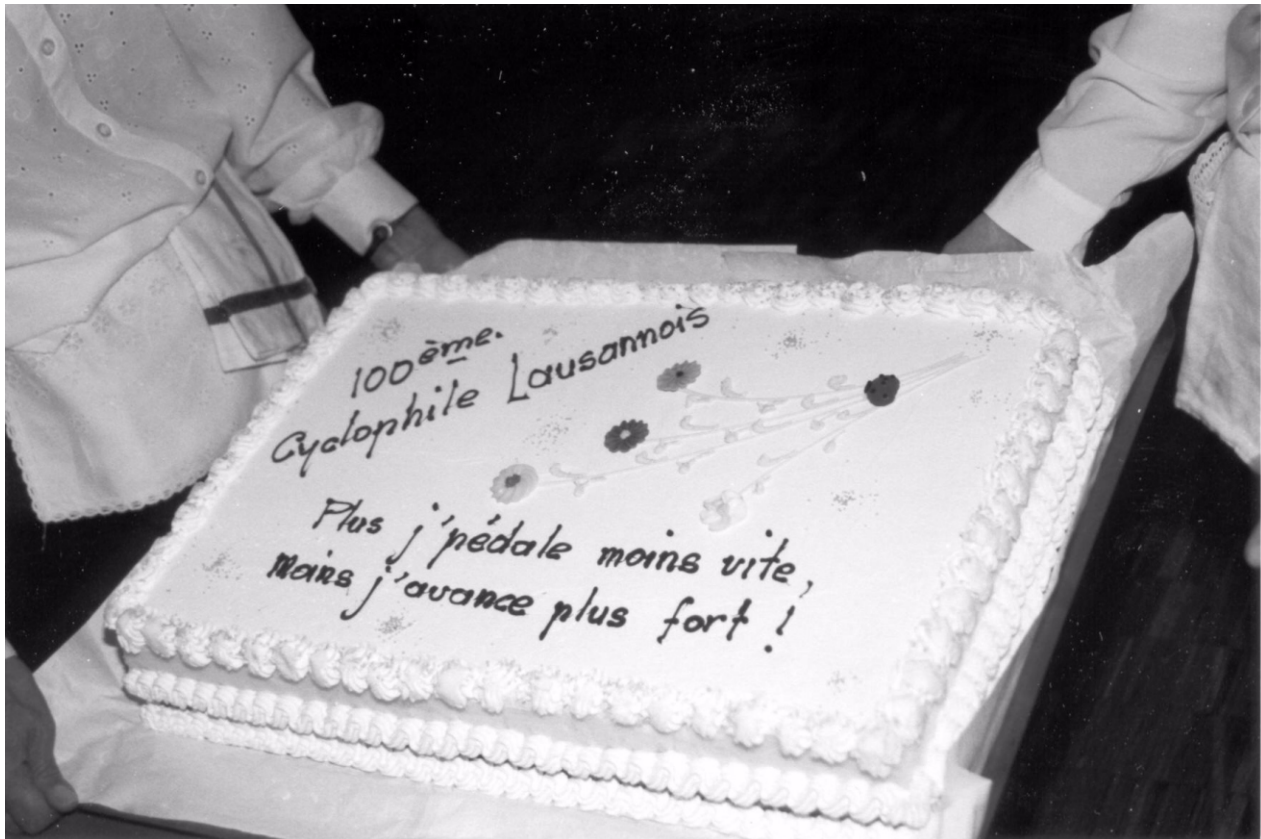 100ème.
Cyclophile Lausannois
Plus j'pédale moins vite,
Moins j'avance plus fort !